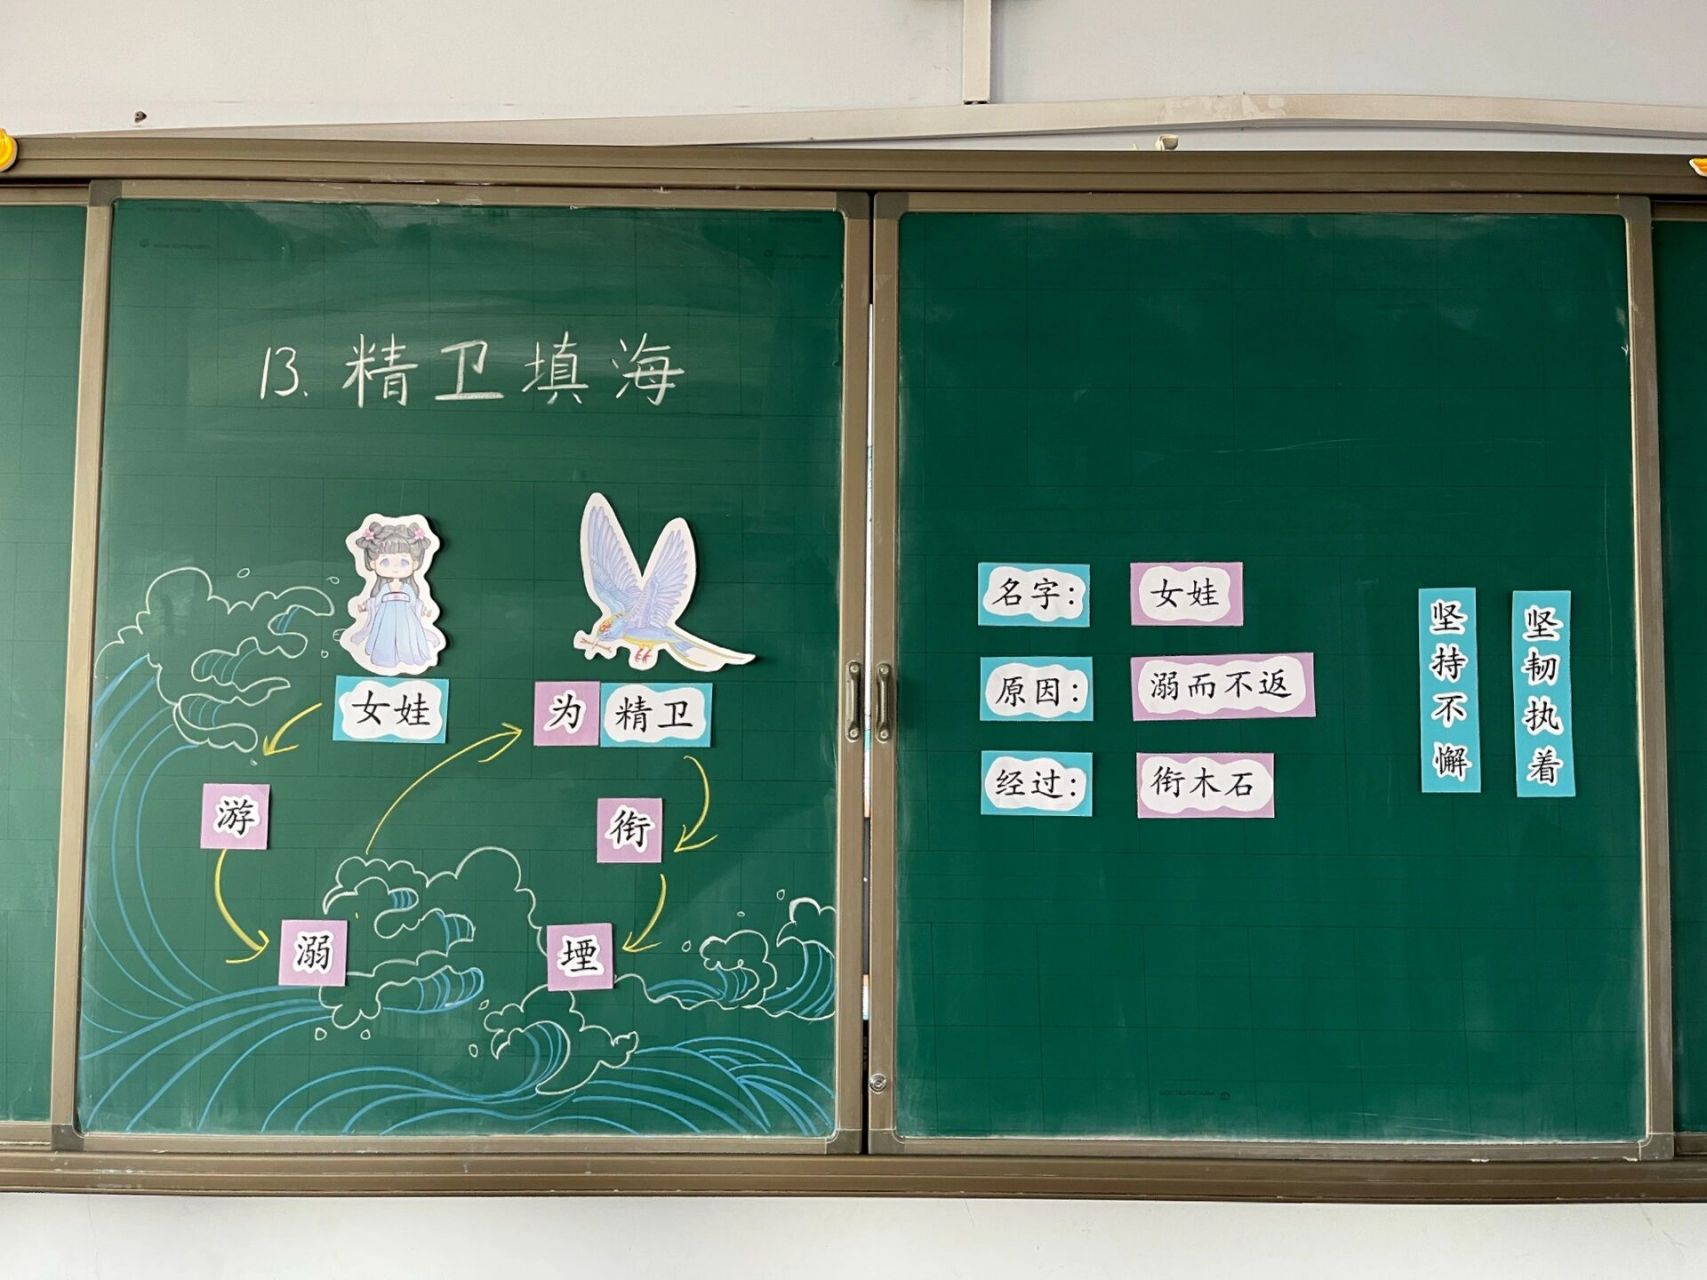 13.精卫填海
女娃
为精卫
游
衔
溺
堙
名字：
女娃
原因：
溺而不返
经过：
衔木石
坚持不懈
坚韧执着